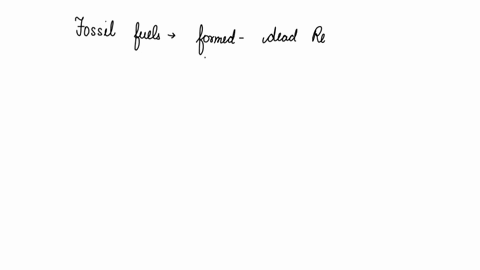 Fossil fuels → formed - dead Re